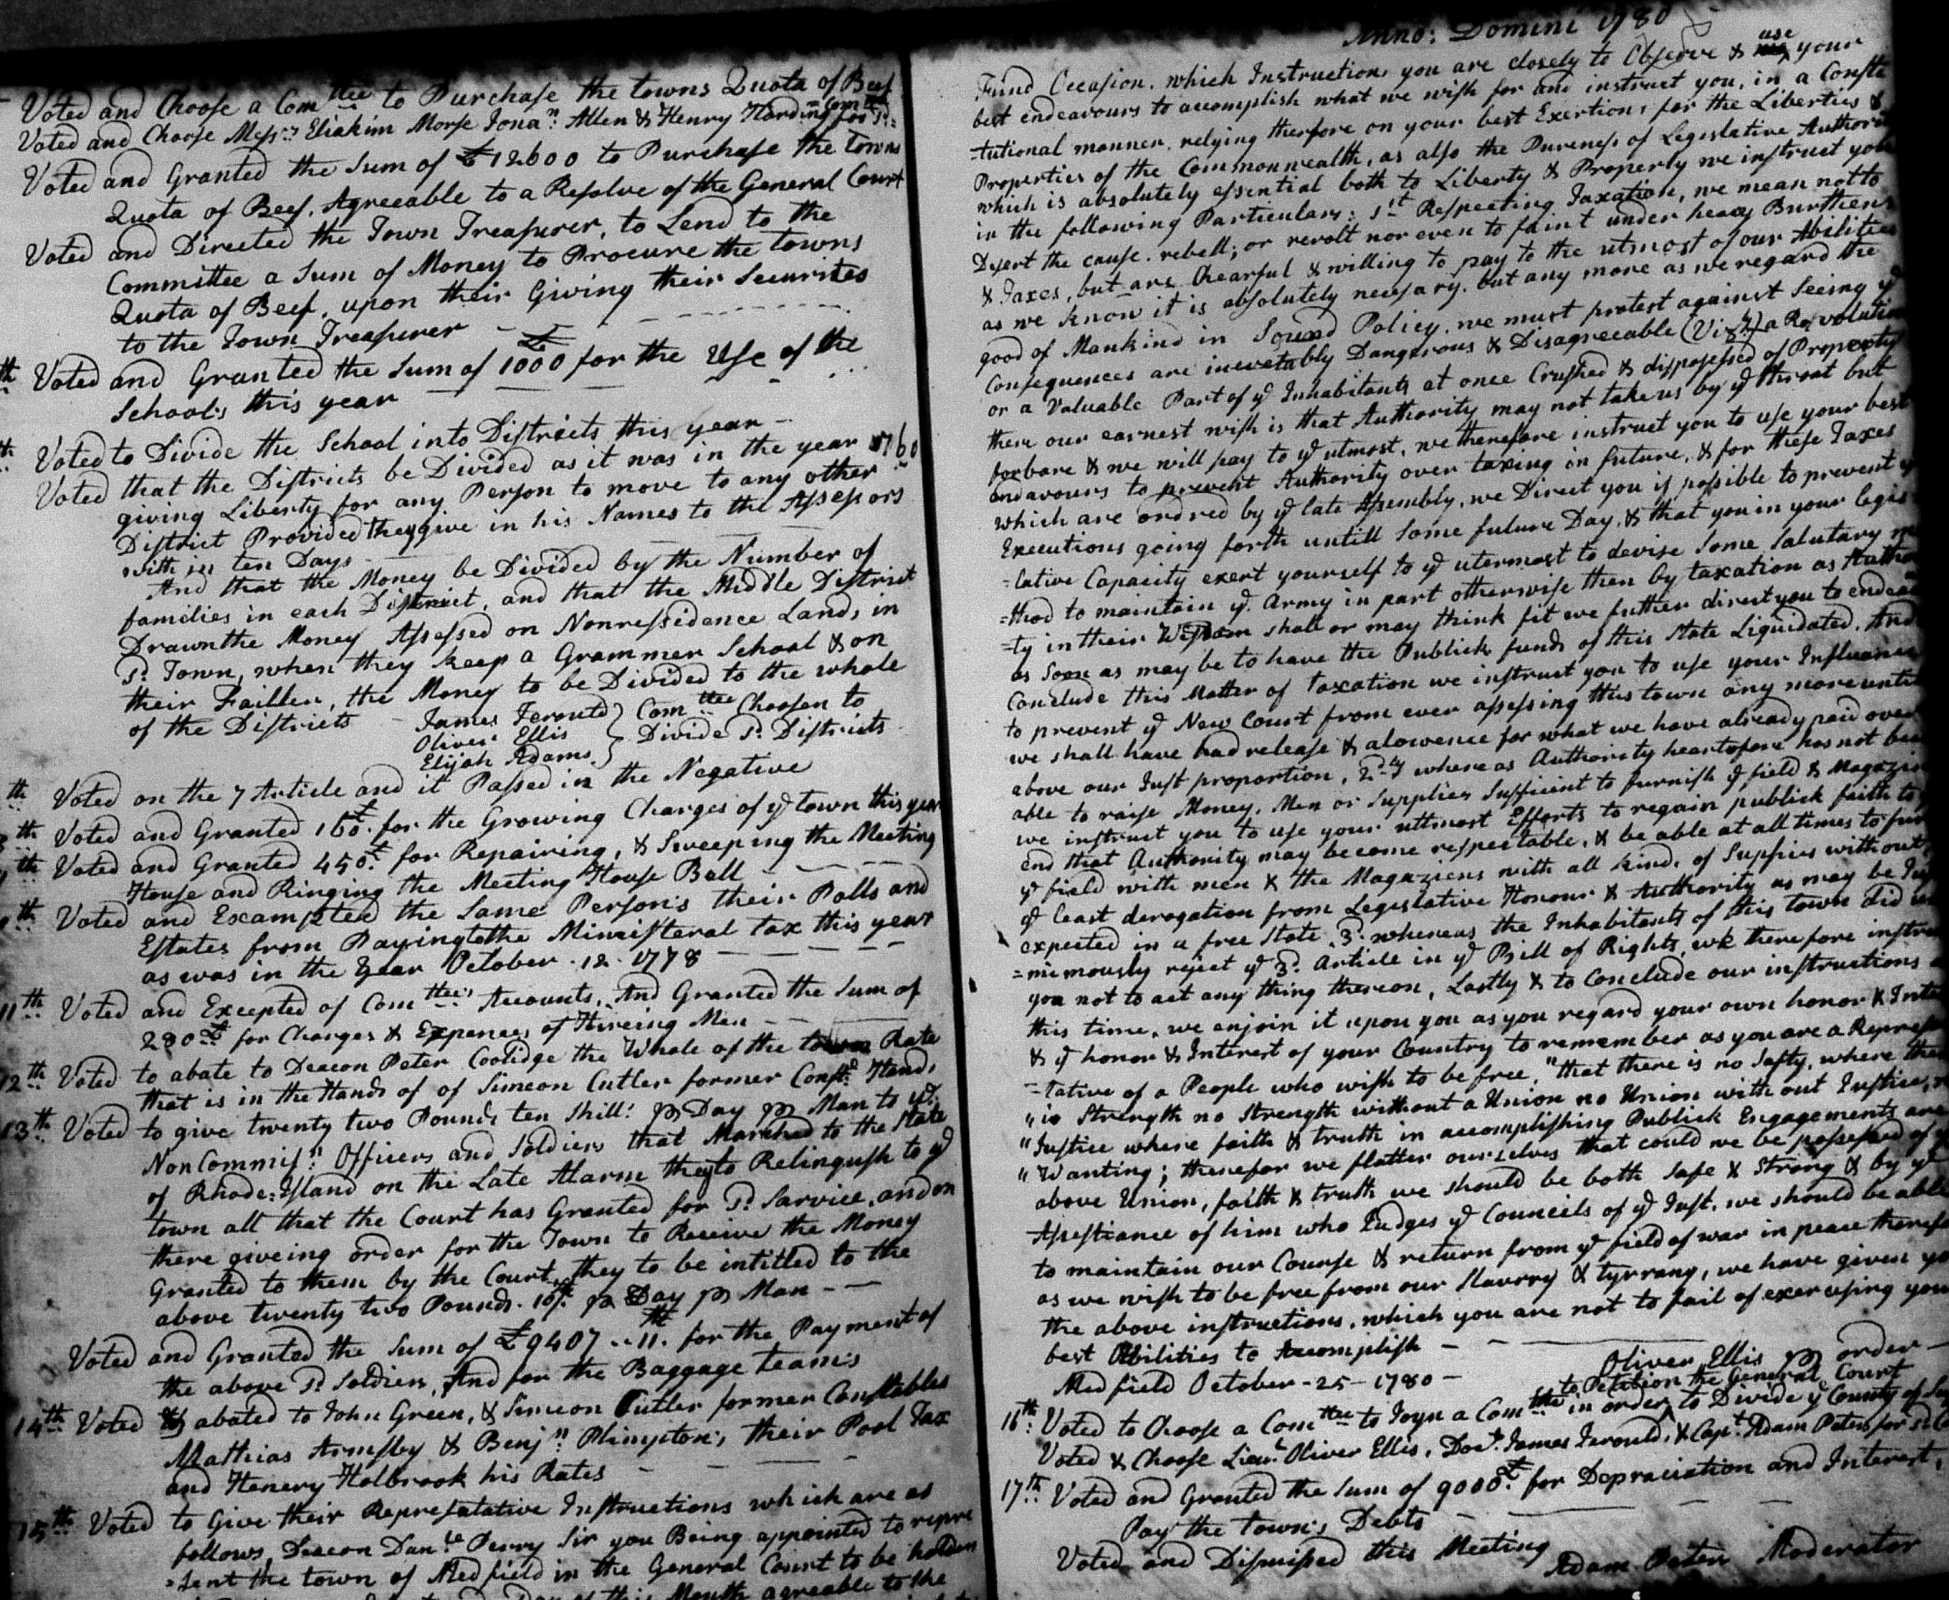 Voted and Choose a Comttee to Purchase the towns Quota of Beef
Voted and Choose Messrs Eliakim Morse Jonan Allen & Henry Harding Comtee for sd
Voted and Granted the Sum of £12600 to Purchase the Towns
Quota of Beef. Agreeable to a Resolve of the General Court
Voted and Directed the Town Treasurer, to Lend to the
Committee a Sum of Money to Procure the towns
Quota of Beef, upon their Giving their Securites
to the Town Treasurer
th Voted and Granted the Sum of £1000 for the Use of the
School's this year
th Voted to Divide the School into Districts this year
Voted that the Districts be Divided as it was in the year 1760
giving Liberty for any Person to move to any other
District Provided they give in his Names to the Assessors
with in ten Days
And that the Money be Divided by the Number of
families in each District, and that the Middle District
Drawn the Money Assessed on Nonressidence Lands in
sd Town, when they keep a Grammer School & on
their Faillen, the Money to be Divided to the whole
of the Districts
James Jerould } Comttee Choosen to
Oliver Ellis } Divide sd Districts
Elijah Adams }
th Voted on the 7 Article and it Passed in the Negative
8th Voted and Granted 160£ for the Growing Charges of ye town this year
9th Voted and Granted 450£ for Repairing, & Sweeping the Meeting
House and Ringing the Meeting House Bell
th Voted and Exampted the Same Person's their Polls and
Estates from Paying to the Ministeral tax this year
as was in the Year October . 12 . 1778
11th Voted and Excepted of Comttee's Accounts, And Granted the Sum of
280£ for Charges & Expences of Hireing Men
12th Voted to abate to Deacon Peter Coolidge the Whole of the town Rate
that is in the Hands of of Simeon Cutler former Constd Hands
13th Voted to give twenty two Pounds ten Shill: pr Day pr Man to ye
Non Commisn Officers and Soldiers that Marched to the State
of Rhode=Island on the Late Alarm they to Relinqush to ye
town all that the Court has Granted for sd Sarvice, and on
there giveing order for the Town to Receive the Money
Granted to them by the Court, they to be intitled to the
above twenty two Pounds. 10s/. pr Day pr Man
Voted and Granted the Sum of £9407 .. 11. for the Payment of
the above sd Soldiers, And for the Baggage team's
14th Voted & abated to John Green, & Simeon Cutler former Constables
Mathias Armsby & Benjn Plimpton's their Pool Tax
and Henery Holbrook his Rates
15th Voted to Give their Represatative Instructions which are as
follows, Deacon Danel Perry Sir you Being appointed to repre
=sent the town of Medfield in the General Court to be holden
Day of this Month agreable to the
Anno: Domini 1780
Fund Occasion. which Instructions you are closely to Observe & use your
best endeavours to accomplish what we wish for and instruct you, in a Consti
=tutional manner. relying therfore on your best Exertions for the Liberties &
Properties of the Commonwealth, as also the Pureness of Legislative Authori
which is absolutely essential both to Liberty & Property we instruct you
in the following Particulars: 1st Respecting Taxation, we mean not to
Desert the cause. rebell; or revolt nor even to faint under heavy Burthens
& Taxes, but are Chearful & willing to pay to the utmost of our Abilities
as we know it is absolutely necessary. but any more as we regard the
good of Mankind in Sound Policy. we must protest against seeing ye
Consequences are inevetably Dangerous & Disagreeable (Vizt) a Revolution
or a Valuable Part of ye Inhabitants at once Crushed & dispossessed of Property
there our earnest wish is that Authority may not take us by ye throat but
forbare & we will pay to ye utmost, we therefore instruct you to use your best
endavours to prevent Authority over taxing in future, & for these Taxes
which are ordred by ye late Assembly, we Direct you if possible to prevent ye
Executions going forth untill Some future Day, & that you in your legis
=lative Capacity exert yourself to ye utermost to devise Some Salutary me
=thod to maintain ye Army in part otherwise then by taxation as Autho
=ty in their Wisdom shall or may think fit we futher direct you to endea
as Soon as may be to have the Publick funds of this State Liquidated. And
Conclude this Matter of Taxation we instruct you to use your Influance
to prevent ye New Court from ever assessing this town any more until
we shall have had release & alowence for what we have already paid over
above our Just proportion, 2dly whereas Authority heartofore has not been
able to raise Money, Men or Supplies Sufficient to furnish ye field & Magazin
we instruct you to use your uttmost Efforts to regain publick faith to ye
end that Authority may become respectable, & be able at all times to fur
ye field with men & the Magaziens with all kinds of Supplies without
ye least derogation from Legislative Honour & Authority as may be Ju
expected in a free State 3d whereas the Inhabitants of this town did un
=nimously reject ye 3d Article in ye Bill of Rights, we therefore instru
you not to act any thing thereon, Lastly & to Conclude our instructions
this time, we enjoin it upon you as you regard your own honor & Inte
& ye honor & Interest of your Country to remember as you are a Represe
=tative of a People who wish to be free, "that there is no Safty, where the
"is Strength no Strength without a Union no Union with out Justice, n
"Justice where faith & truth in accomplishing Publick Engagements are
"Wanting; therefor we flatter ourselves that could we be possessed of ye
above Union, faith & truth we should be both Safe & Strong & by ye
Assestiance of him who Judges ye Councils of ye Just. we should be able
to maintain our Course & return from ye field of war in peace therefo
as we wish to be free from our Slavery & tyrrany, we have given yo
the above instructions, which you are not to fail of exersising your
best Abilities to Accomplish
Medfield October - 25 - 1780 -
Oliver Ellis pr order
to Petition the General Court
16th Voted to Choose a Comttee to Joyn a Comttee in order to Divide ye County of Su
Voted & Choose Lieut Oliver Ellis, Doct. James Jerould, & Capt. Adam Peters for sd Co
17th Voted and Granted the Sum of 9000£ for Depraciation and Interest,
Pay the town's Debts
Voted and Dismissed this Meeting
Adam Peters Moderator